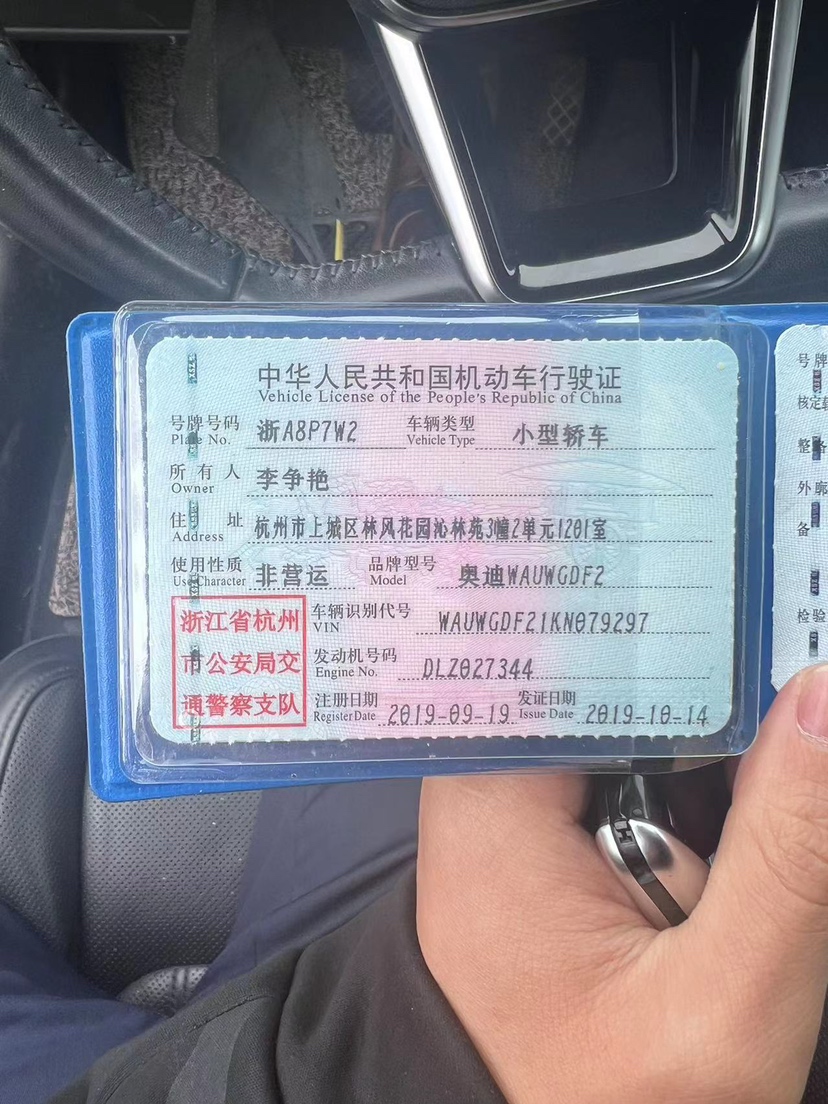 中华人民共和国机动车行驶证
Vehicle License of the People's Republic of China
号牌号码 浙A8P7W2 车辆类型 小型轿车
Plate No. Vehicle Type
所有人 李争艳
Owner
住址 杭州市上城区林风花园沁林苑3幢2单元1201室
Address
使用性质 非营运 品牌型号 奥迪WAUWGDF2
Use Character Model
浙江省杭州
市公安局交
通警察支队
车辆识别代号 WAUWGDF21KN079297
VIN
发动机号码 DLZ027344
Engine No.
注册日期 2019-09-19 发证日期 2019-10-14
Register Date Issue Date
号牌
核定载
整备
外廓
备
检验